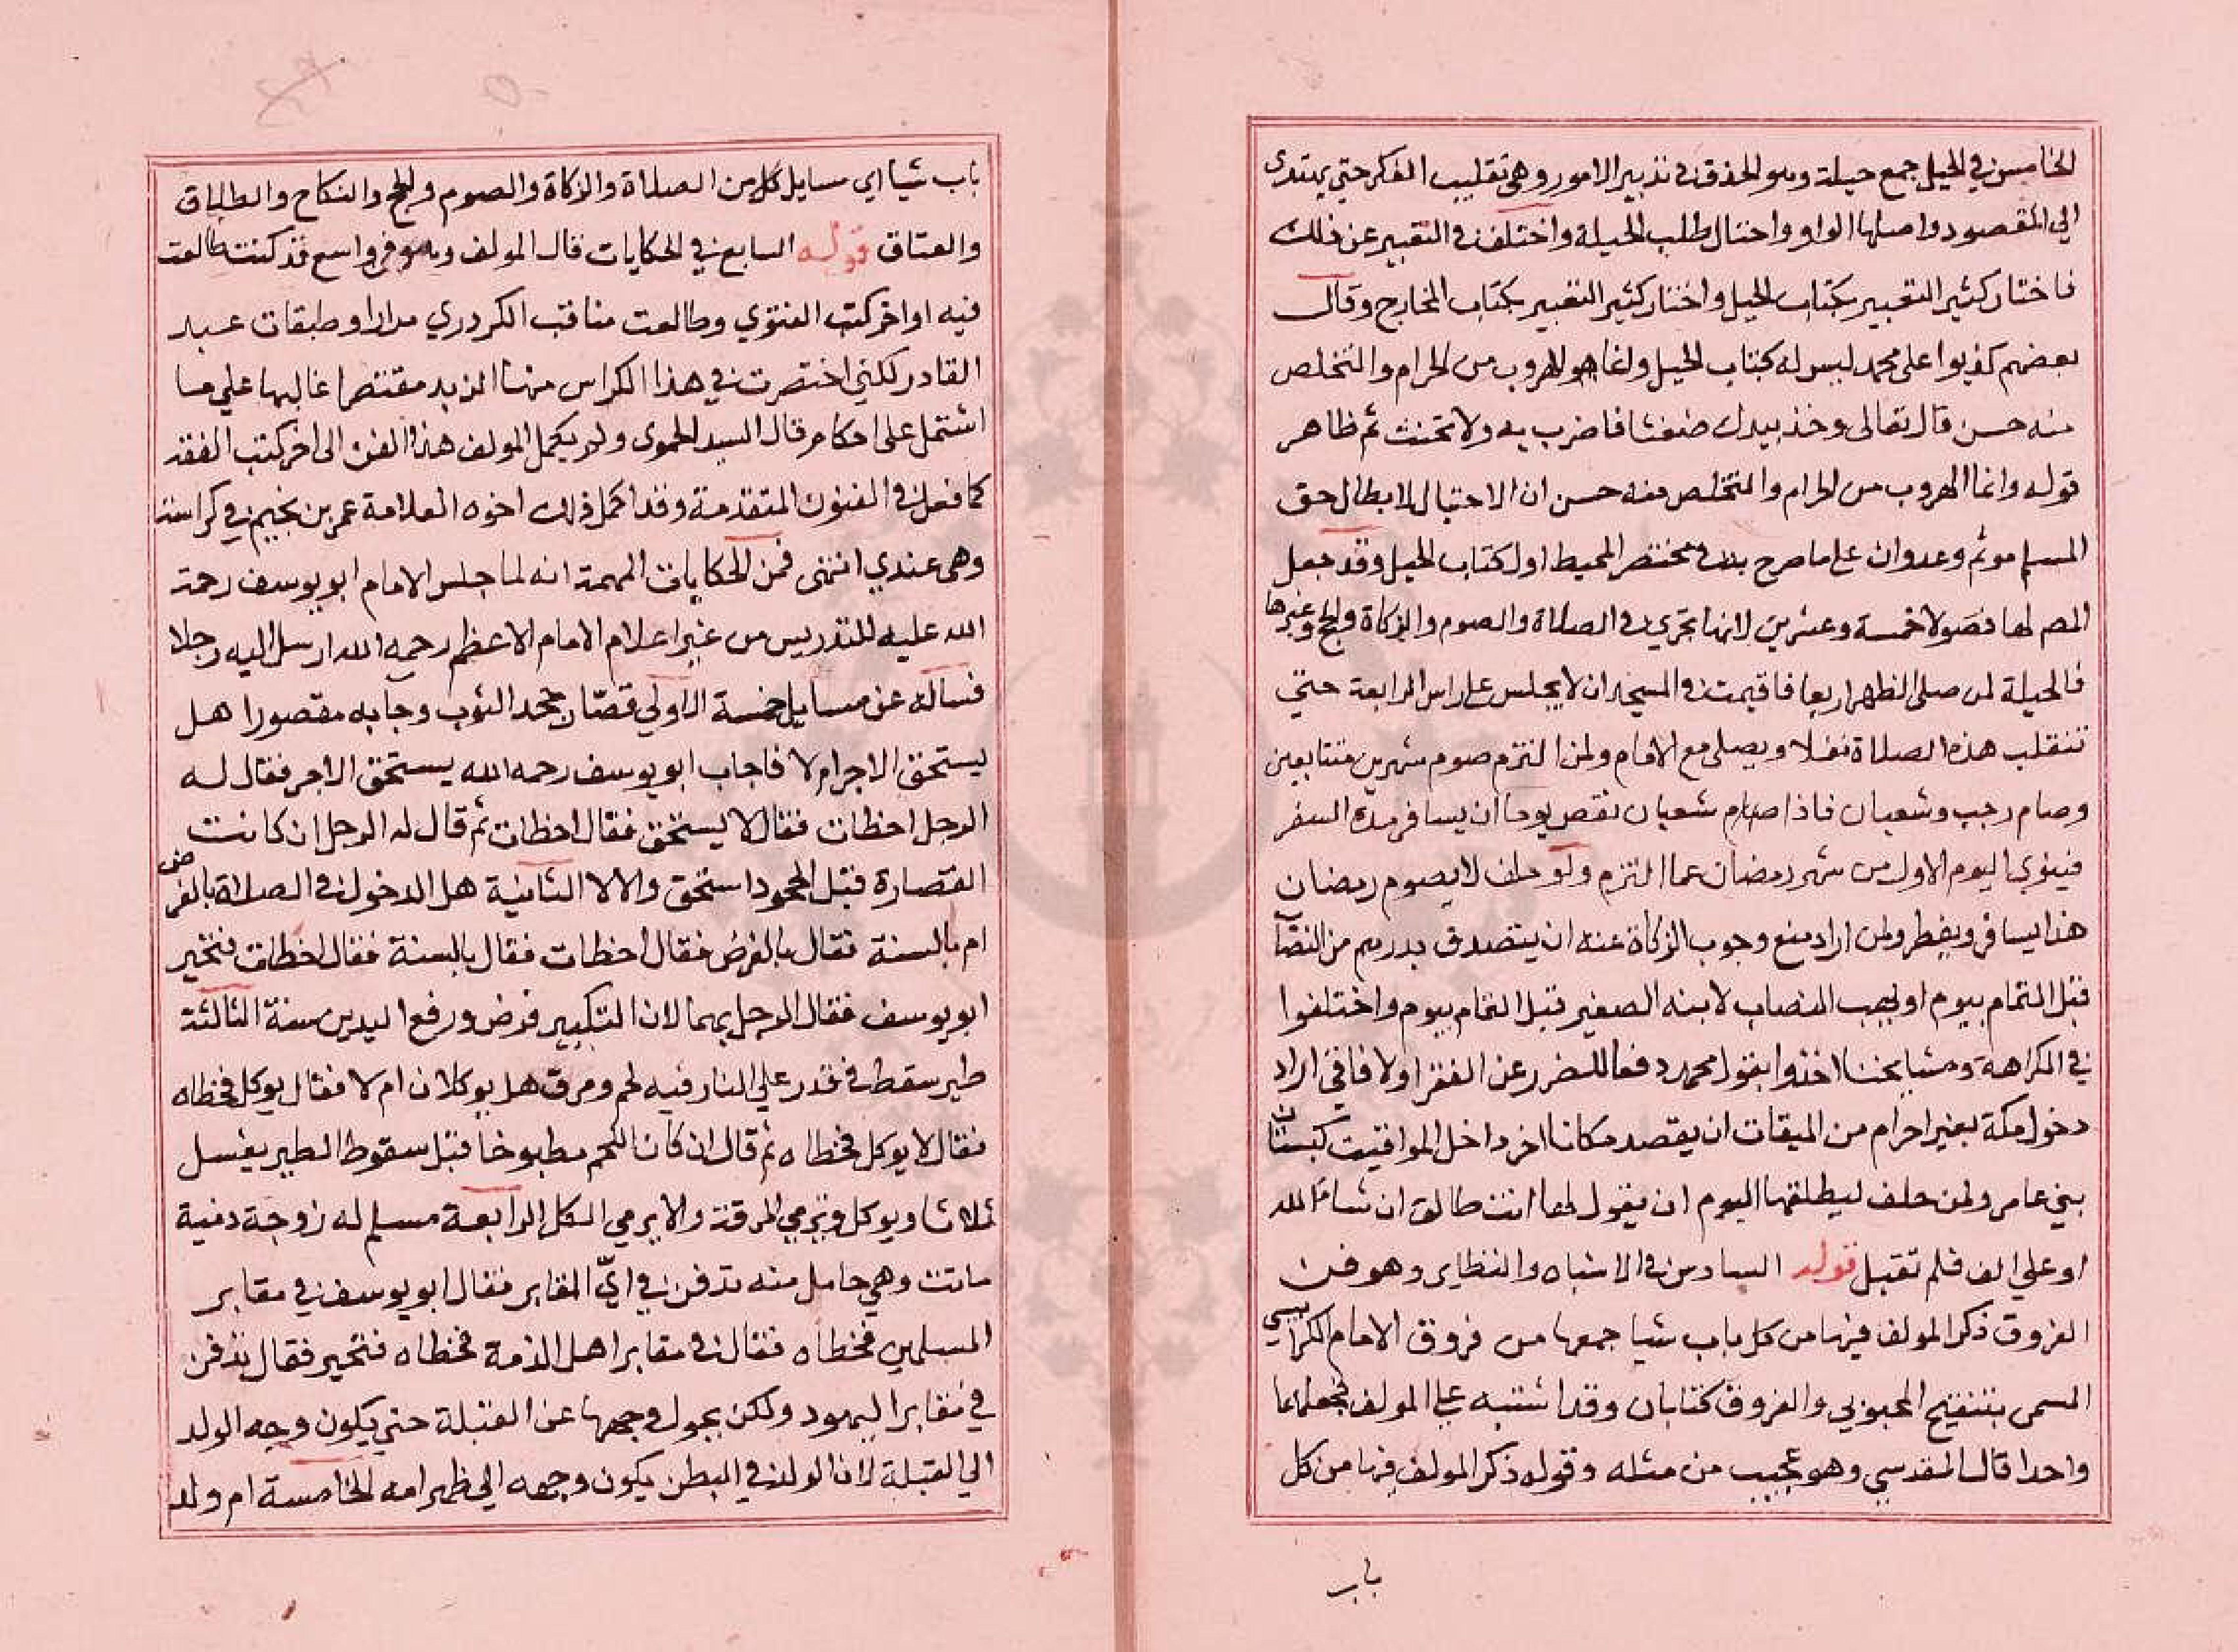 الخامس في الحيل جمع حيلة وهو الحذق في تدبير الامور وهي تقليب الفكر حتي يهتدي
الي المقصود واصلها الواو واحتال طلب الحيلة واختلف في التعبير عن ذلك
فاختار كثير التعبير بكتاب الحيل واختار كثير التعبير بكتاب المخارج وقال
بعضهم كذبوا علي محمد ليس له كتاب الحيل وانما هو الهروب من الحرام والتخلص
منه حسن قال تعالى وخذ بيدك ضغثا فاضرب به ولا تحنث ثم ظاهر
قوله وانما الهروب من الحرام والتخلص منه حسن ان الاحتيال لابطال حق
المسلم موثم وعدوان علي ما صرح به في مختصر المحيط اول كتاب الحيل وقد جعل
المص لها فصولا خمسة وعشرين لانها تجري في الصلاة والصوم والزكاة والحج وغيرها
فالحيلة لمن صلى الظهر اربعا فاقيمت في المسجد ان لا يجلس علي راس الرابعة حتي
تنقلب هذه الصلاة نفلا ويصلي مع الامام ولمن التزم صوم شهرين متتابعين
وصام رجب وشعبان فاذا صام شعبان نقص يوما ان يسافر مدة السفر
فينوي اليوم الاول من شهر رمضان عما التزم ولو حلف لا يصوم رمضان
هذا يسافر ويفطر ولمن اراد منع وجوب الزكاة عنه ان يتصدق بدرهم من النصاب
قبل التمام بيوم او يهب النصاب لابنه الصغير قبل التمام بيوم واختلفوا
في الكراهة ومشايخنا اخذوا بقول محمد دفعا للضرر عن الفقراء ولافاقي اراد
دخول مكة بغير احرام من الميقات ان يقصد مكانا اخر داخل المواقيت كبستان
بني عامر ولمن حلف ليطلقها اليوم ان يقول لها انت طالق ان شاء الله
او علي الف فلم تقبل قوله السادس في الاشباه والنظاير وهو فن
الفروق ذكر المولف فيها من كل باب شيا جمعها من فروق الامام الكرابيسي
المسمى بتنقيح المحبوبي والفروق كتابان وقد اشتبه علي المولف فجعلهما
واحدا قال المقدسي وهو عجيب من مثله وقوله ذكر المولف فيها من كل
باب
باب شيا اي مسايل كل من الصلاة والزكاة والصوم والحج والنكاح والطلاق
والعتاق قوله السابع في الحكايات قال المولف وهو فن واسع قد كنت طالعت
فيه اواخر كتب الفتوي وطالعت مناقب الكردري مرارا وطبقات عبد
القادر لكني اختصرت في هذا الكراس منها الزبد مقتصرا غالبها علي ما
اشتمل علي احكام قال السيد الحموي ولم يكمل المولف هذا الفن الى اخر كتب الفقه
كما فعل في الفنون المتقدمة وقد اكمل ذلك اخوه العلامة عمر بن نجيم في كراسة
وهي عندي انتهى فمن الحكايات المهمة انه لما جلس الامام ابو يوسف رحمة
الله عليه للتدريس من غير اعلام الامام الاعظم رحمه الله ارسل اليه رجلا
فساله عن مسايل خمسة الاولي قصّار جحد الثوب وجا به مقصورا هل
يستحق الاجر ام لا فاجاب ابو يوسف رحمه الله يستحق الاجر فقال له
الرجل اخطات فقال لا يستحق فقال اخطات ثم قال له الرجل ان كانت
القصارة قبل الجحود استحق والا لا الثانية هل الدخول في الصلاة بالفرض
ام بالسنة فقال بالفرض فقال اخطات فقال بالسنة فقال اخطات فتحير
ابو يوسف فقال الرجل بهما لان التكبير فرض ورفع اليدين سنة الثالثة
طير سقط في قدر علي النار فيه لحم ومرق هل يوكلان ام لا فقال يوكل فخطاه
فقال لا يوكل فخطاه ثم قال ان كان اللحم مطبوخا قبل سقوط الطير يغسل
ثلاثا ويوكل وترمي المرقة والا يرمي الكل الرابعة مسلم له زوجة ذمية
ماتت وهي حامل منه تدفن في ايّ المقابر فقال ابو يوسف في مقابر
المسلمين فخطاه فقال في مقابر اهل الذمة فخطاه فتحير فقال تدفن
في مقابر اليهود ولكن يحول وجهها عن القبلة حتي يكون وجه الولد
الي القبلة لان الولد في البطن يكون وجهه الي ظهر امه الخامسة ام ولد